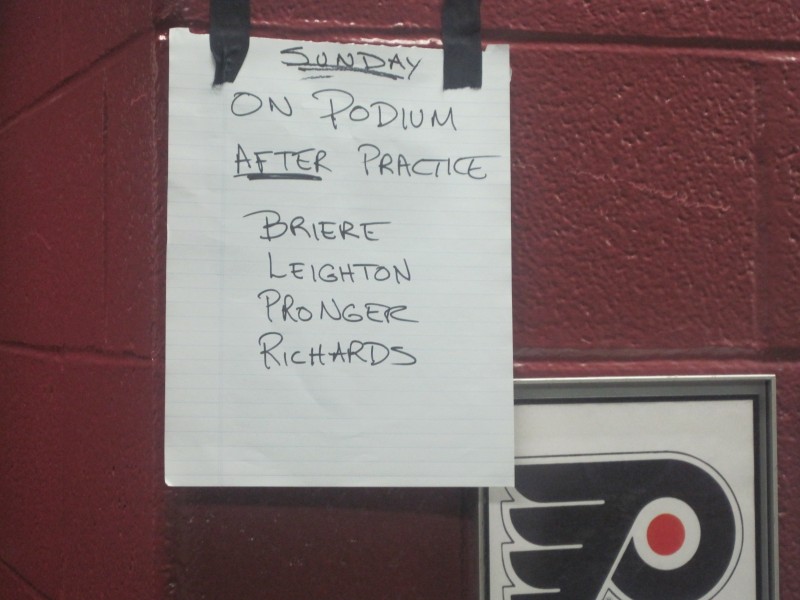 SUNDAY
ON PODIUM
AFTER PRACTICE
BRIERE
LEIGHTON
PRONGER
RICHARDS